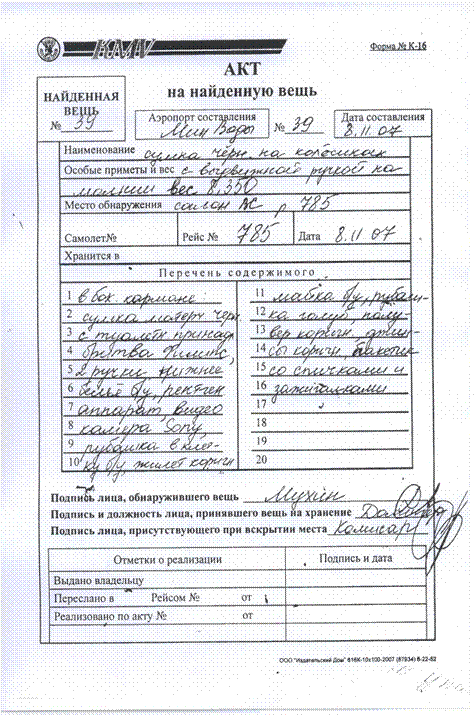 KMV
Форма № К-16
АКТ
на найденную вещь
НАЙДЕННАЯ
ВЕЩЬ
№ 39
Аэропорт составления
Мин Воды
№ 39
Дата составления
8.11.07
Наименование сумка чёрн. на колёсиках
Особые приметы и вес с выдвижной ручкой на
молнии вес 8,350
Место обнаружения салон ВС р 785
Самолет№ Рейс № 785 Дата 8.11.07
Хранится в
Перечень содержимого
1 в бок. кармане
2 сумка матерч черн.
3 с туалетн принад
4 бритва Филипс,
5 2 ручки нижнее
6 бельё б/у, рентген
7 аппарат, видео
8 камера Sony,
9 рубашка в кле-
10 ку б/у, жилет коричн
11 майка б/у, рубаш-
12 ка голуб, полу-
13 вер коричн, джин-
14 сы коричн, пакетик
15 со спичками и
16 зажигалками
17
18
19
20
Подпись лица, обнаружившего вещь Мухин
Подпись и должность лица, принявшего вещь на хранение
Подпись лица, присутствующего при вскрытии места
Отметки о реализации Подпись и дата
Выдано владельцу
Переслано в Рейсом № от
Реализовано по акту № от
ООО "Издательский Дом" 616К-10х100-2007 (87934) 6-22-62